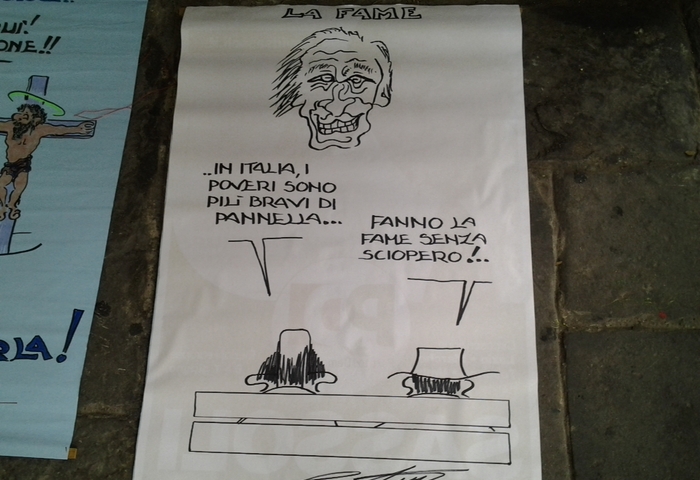 LA FAME
..IN ITALIA, I
POVERI SONO
PILI BRAVI DI
PANNELLA...
FANNO LA
FAME SENZA
SCIOPERO!..
ONE!!
RLA!